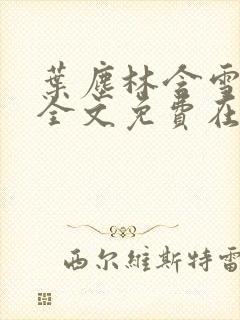 葉塵林含雪
全文免費在
西尔維斯特雷